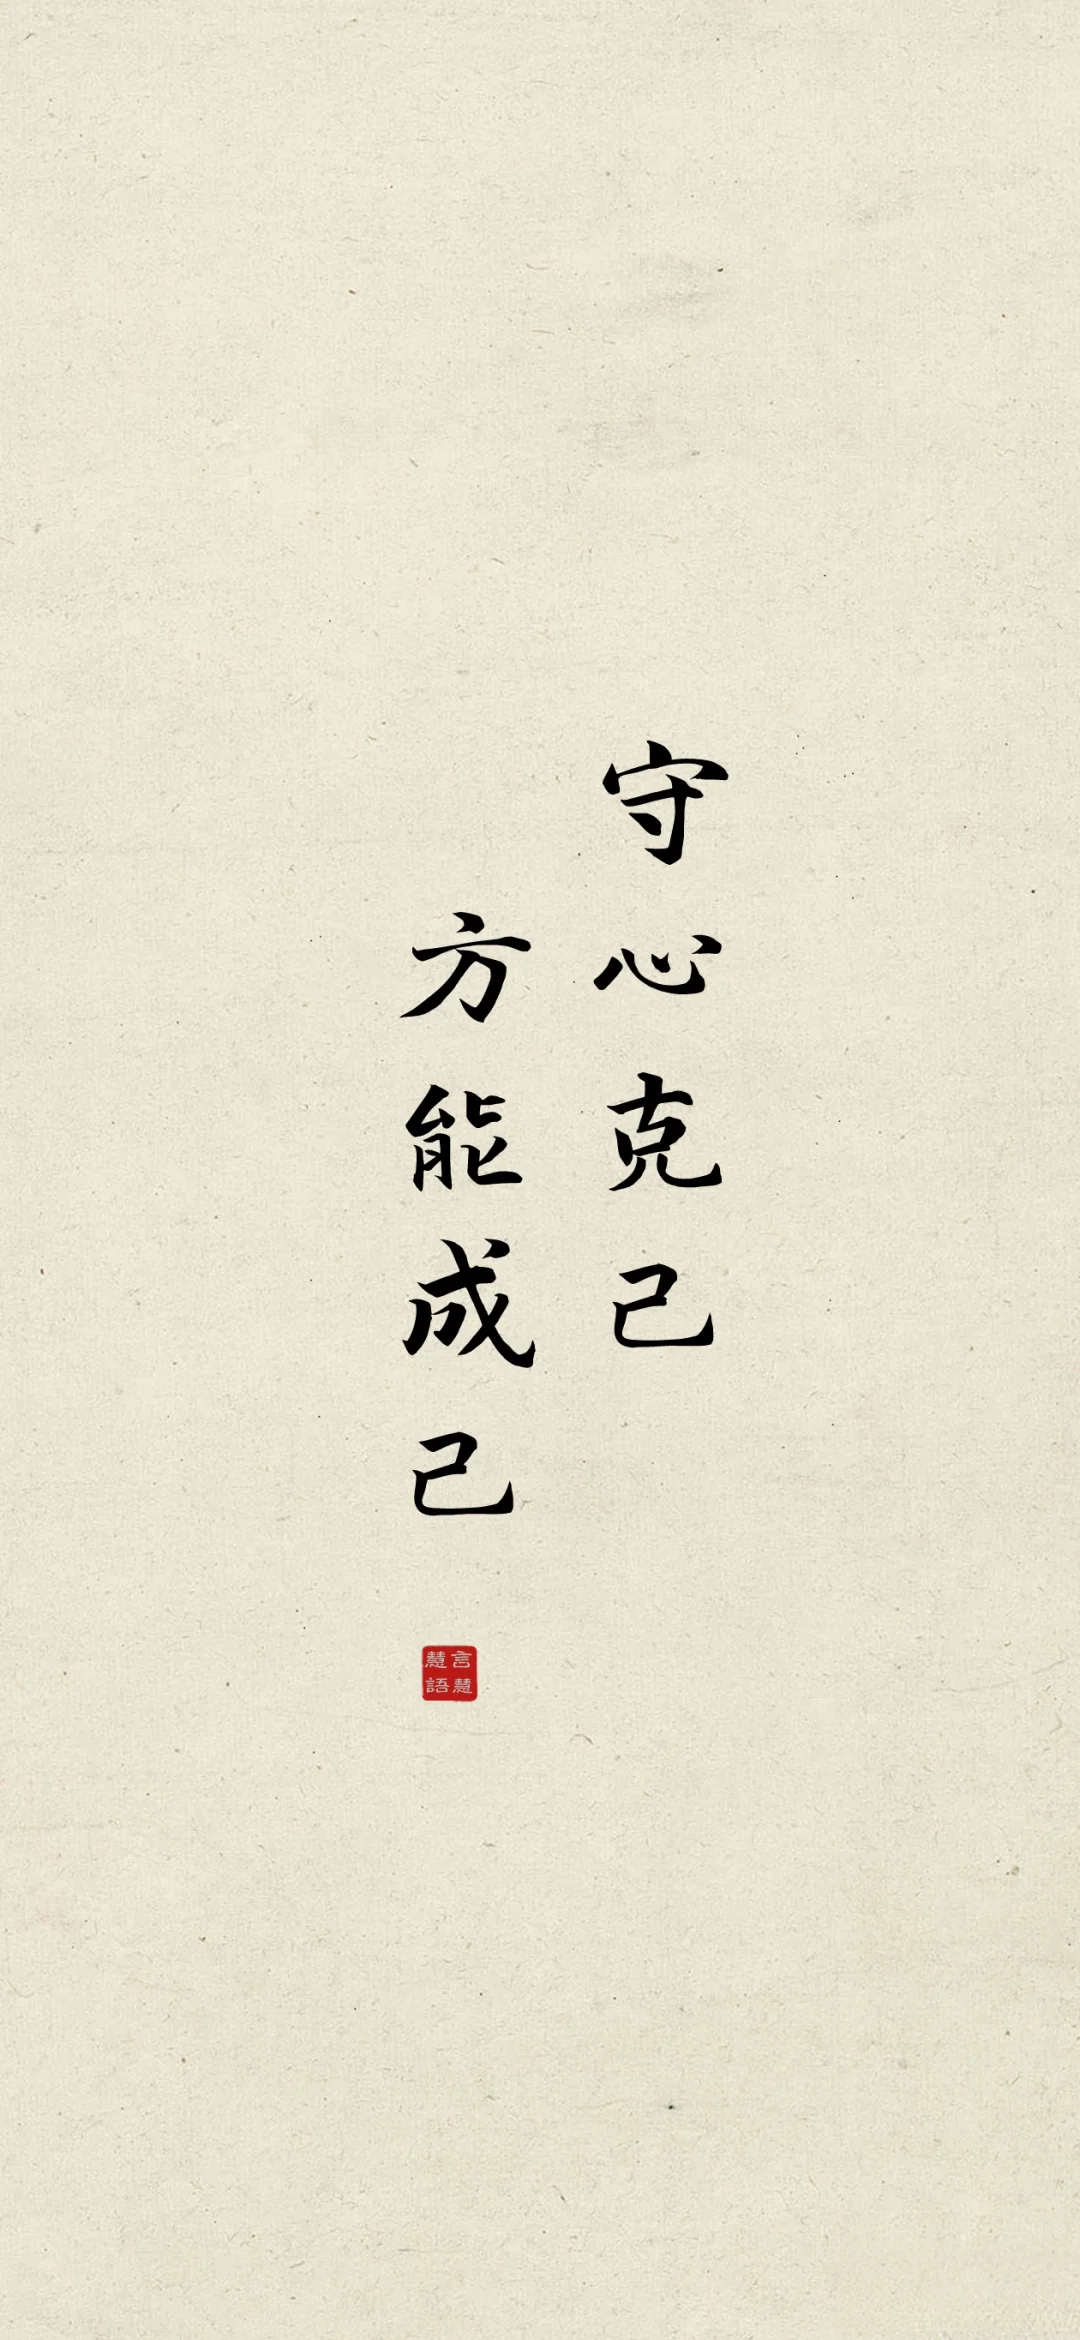 守心克己
方能成己
言慧
慧語